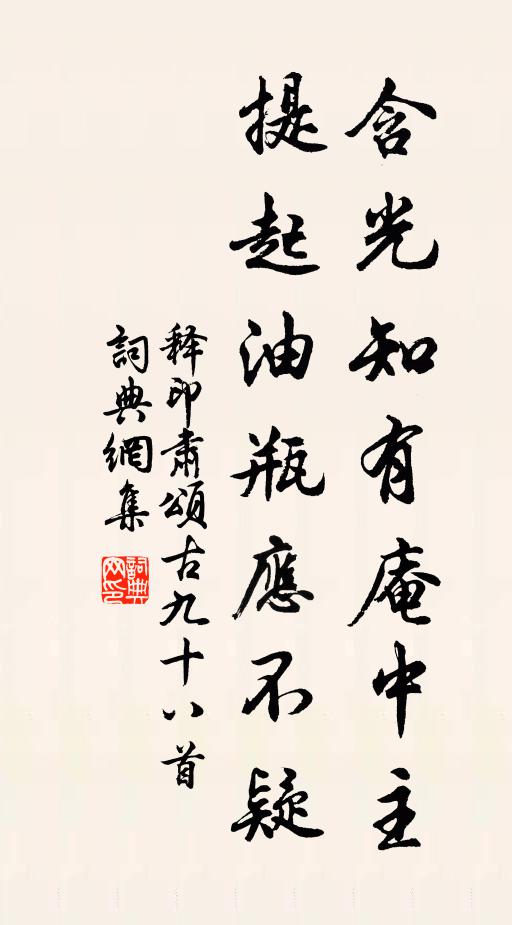 含光知有庵中主
提起油瓶應不疑
释印肃頌古九十八首
詞典網集
詞典网印